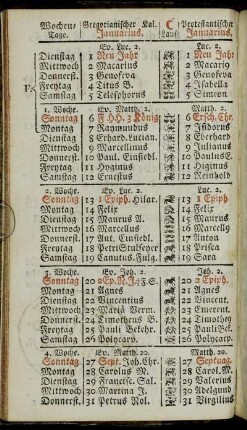 Wochen- Gregorianischer Kal. ☾ Protestantischer
Tage. Januarius. Lauf Januarius.
Ev. Luc. 2. Luc. 2.
Dienstag 1 Neu Jahr 1 Neu Jahr
Mittwoch 2 Macarius 2 Macari9
Donnerst. 3 Genofeva 3 Genofeva
Freytag 4 Titus B. 4 Isabella
Samstag 5 Telesphorus 5 Simeon
1. Woche. Ev. Matth. 2. Matth. 2.
Sonntag 6 F. HH. 3 König 6 Ersch. Chr.
Montag 7 Raymundus 7 Isidorus
Dienstag 8 Erhard. Lucian. 8 Erhard
Mittwoch 9 Marcellinus 9 Julianus
Donnerst. 10 Paul. Einsidl. 10 Paulus E.
Freytag 11 Hyginus 11 Higinus
Samstag 12 Ernestus 12 Reinhold
2. Woche. Ev. Luc. 2. Luc. 2.
Sonntag 13 1 Epiph. Hilar. 13 1 Epiph
Montag 14 Felix 14 Felix
Dienstag 15 Maurus A. 15 Maurus
Mittwoch 16 Marcellus 16 Marcell9
Donnerst. 17 Ant. Einsidl. 17 Anton
Freytag 18 Petri Stulfeyer 18 Prisca
Samstag 19 Canutus. Fulg. 19 Sara
3. Woche. Ev. Joh. 2. Joh. 2.
Sonntag 20 2 Ep. N. J. F. S. 20 2 Epiph
Montag 21 Agnes 21 Agnes
Dienstag 22 Vincentius 22 Vincent.
Mittwoch 23 Mariä Verm. 23 Emerent
Donnerst. 24 Timotheus B. 24 Timothey
Freytag 25 Pauli Bekehr. 25 Pauli Bek.
Samstag 26 Polycarp. 26 Polycarp.
4. Woche. Ev. Matth. 20. Matth. 20.
Sonntag 27 Sept. Joh. Chr. 27 Septuag.
Montag 28 Carolus M. 28 Carol. M.
Dienstag 29 Francisc. Sal. 29 Valerius
Mittwoch 30 Martina J. 30 Adelgund
Donnerst. 31 Petrus Nol. 31 Virgilius